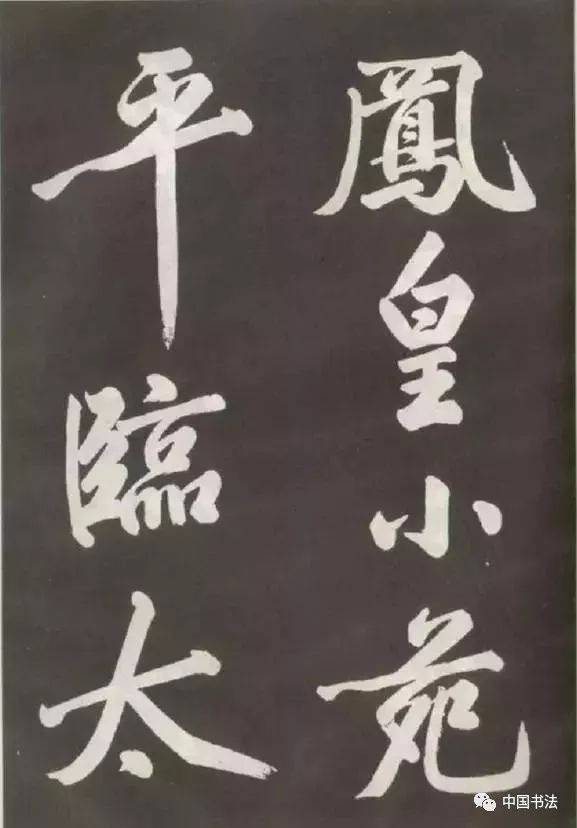 鳳皇小苑
平臨太
中国书法